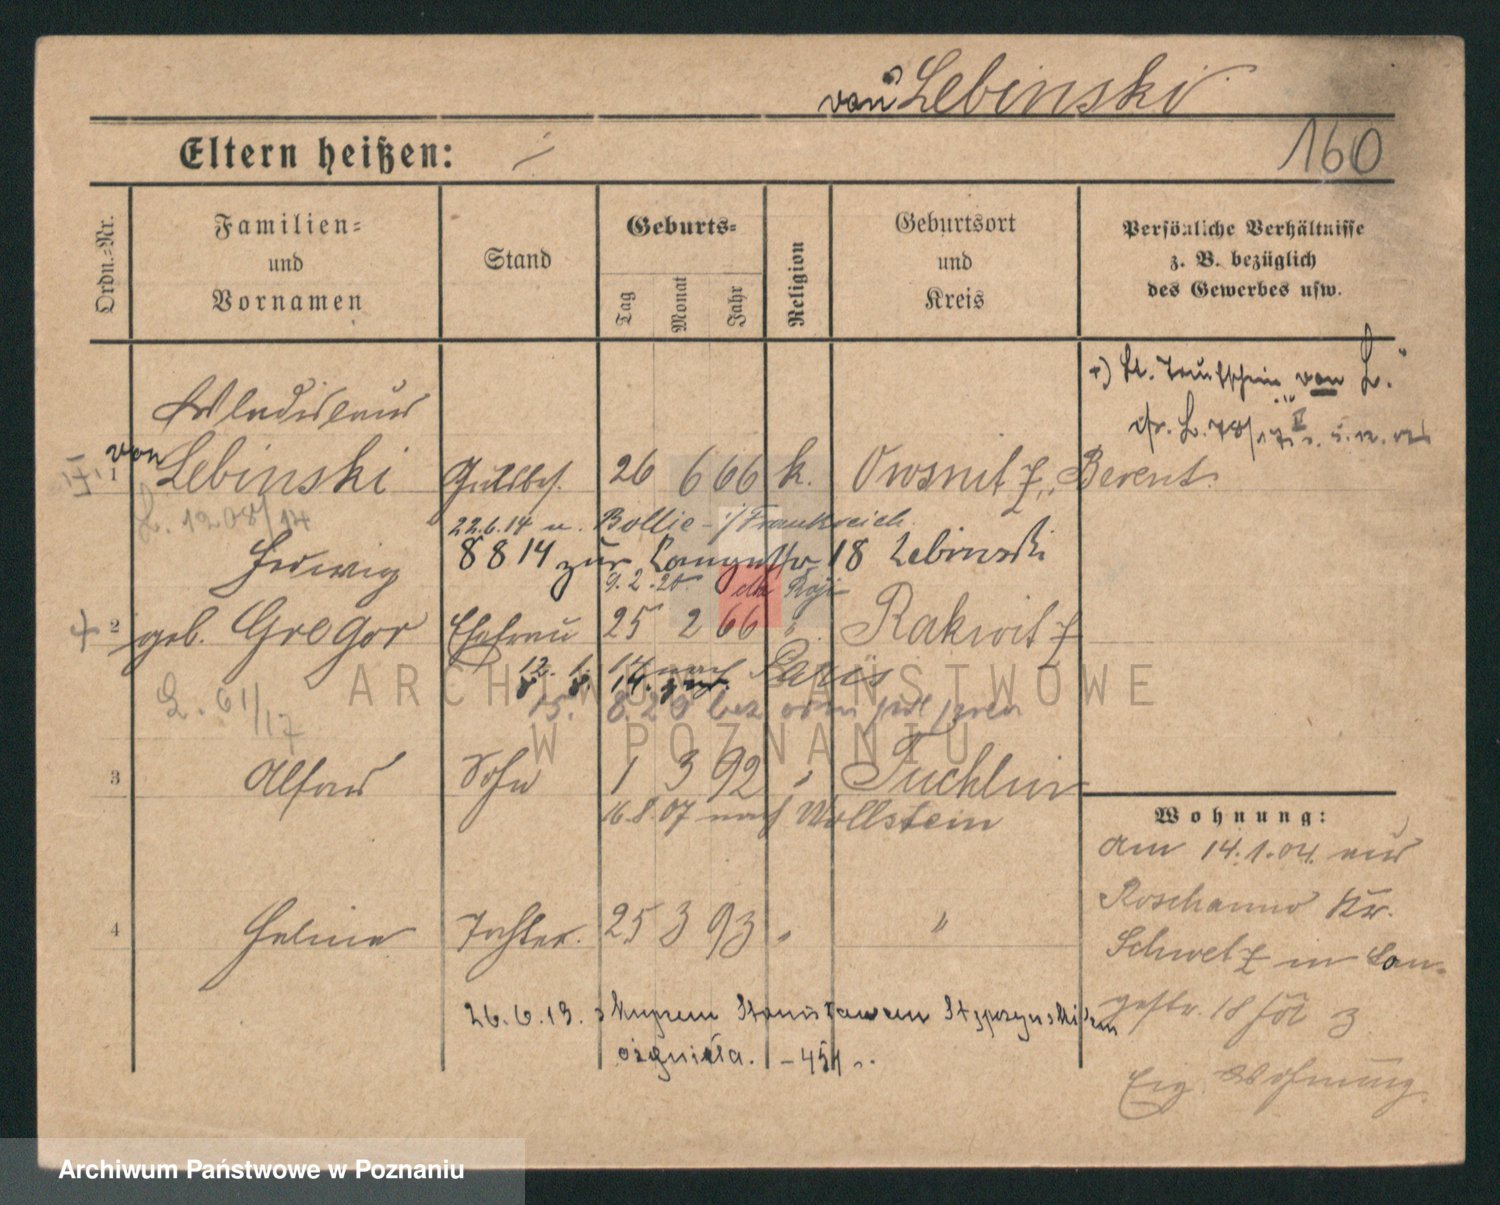 von Lebinski
160
Eltern heißen: —
Ordn.=Nr.
Familien=
und
Vornamen
Stand
Geburts=
Tag
Monat
Jahr
Religion
Geburtsort
und
Kreis
Persönliche Verhältnisse
z. B. bezüglich
des Gewerbes usw.
+) Lt. Taufschein von L.
Wladislaus
1 von Lebinski Gutsbes. 26 6 66 k. Owsnitz, Berent
L. 1208/14
22.6.14 n. Bollie i/Frankreich
Hedwig
8 8 14 zur Langestr. 18 Lebinski
9.2.20
2 geb. Gregor Ehefrau 25 2 66 " Rakwitz
12. 1. 14 nach Paris
8. 8. 14.
L. 61/17
15. 8. 20
3 Alfons Sohn 1 3 92 " Tuchlin
16.8.07 nach Wollstein
4 Halina Tochter 25 3 93 " "
26.6.19. z kupcem Stanisławem Stypczyńskiem
ożeniła. - 451 -
Wohnung:
am 14.1.04. aus
Roschanno Kr.
Schwetz in Lan-
gestr. 18
Eig. Wohnung
ARCHIWUM PAŃSTWOWE
W POZNANIU
Archiwum Państwowe w Poznaniu